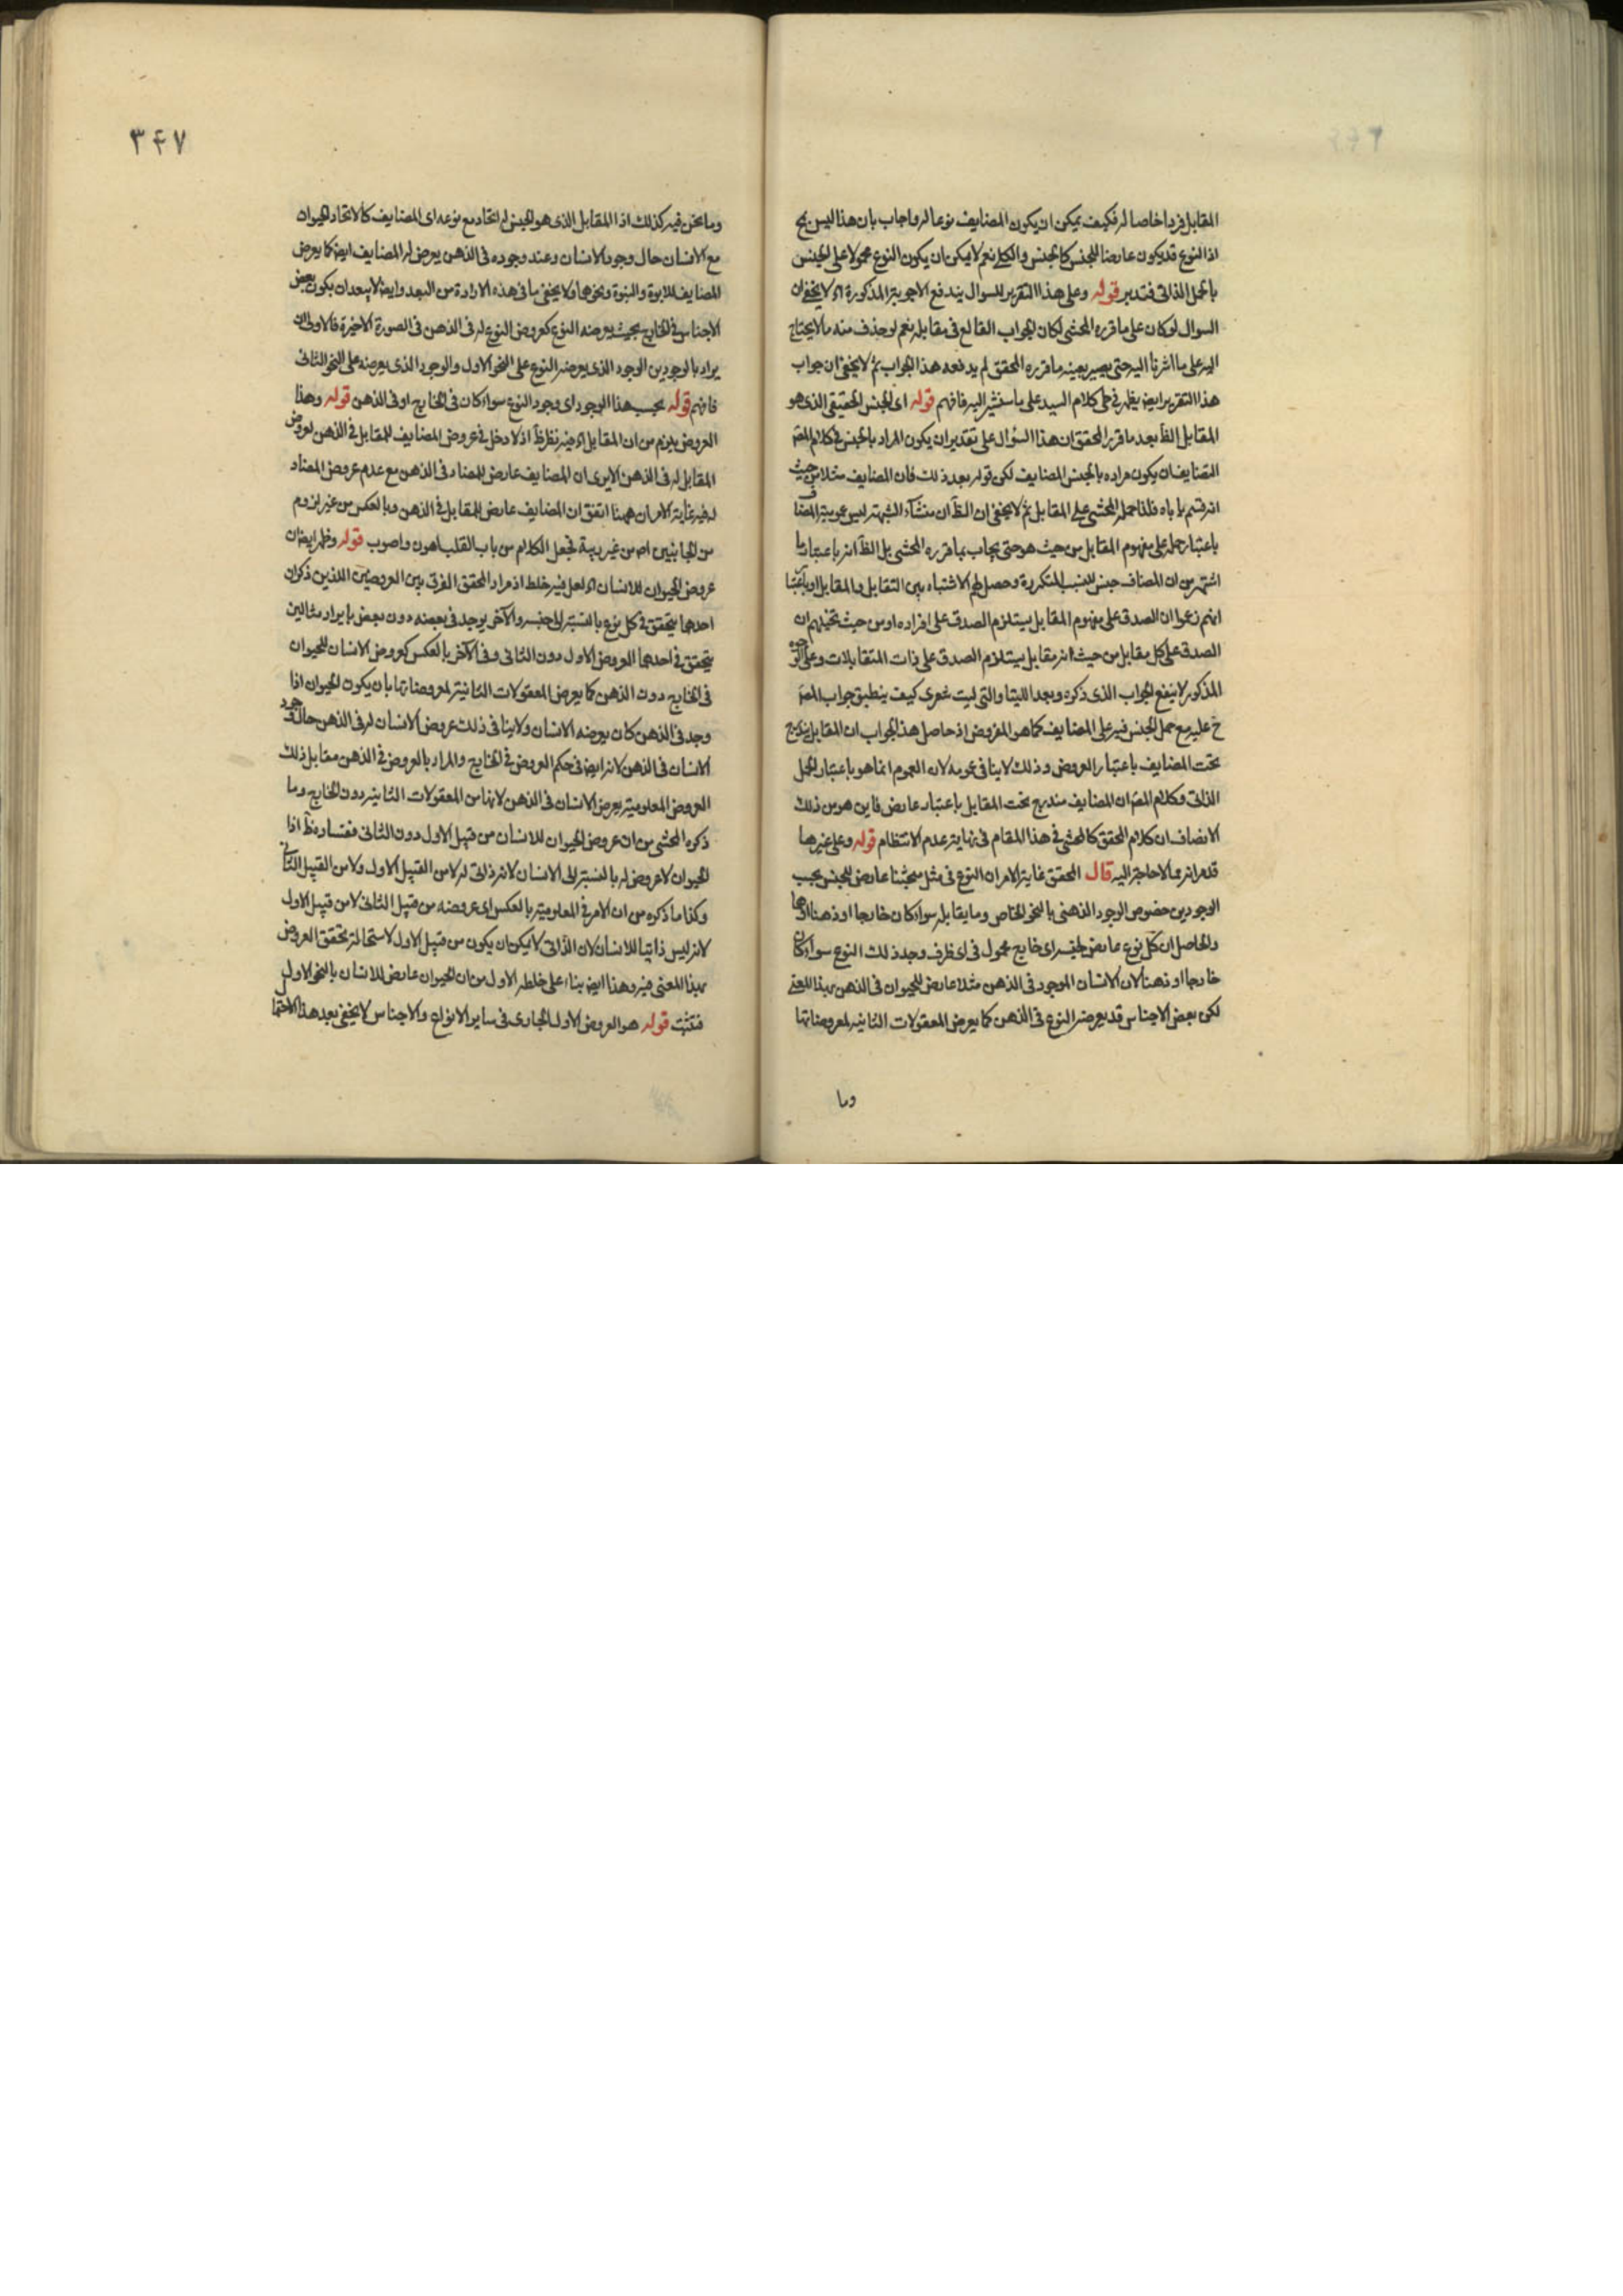 المقابل فردا خاصا له فكيف يمكن ان يكون المضايف نوعا له واجاب بان هذا ليس بمح
اذ النوع قد يكون عارضا للجنس كالجنس والكلي نعم لا يمكن ان يكون النوع محمولا على الجنس
بالحمل الذاتى فتدبر قوله وعلى هذا التقرير للسوال يندفع الاجوبة المذكورة اه لا يخفى ان
السوال لو كان على ما قرره المحشى لكان الجواب القالع فى مقابله نعم لو حذف منه ما لا يحتاج
اليه على ما اشرنا اليه حتى يصير بعينه ما قرره المحقق لم يدفعه هذا الجواب ثم لا يخفى ان جواب
هذا التقرير ايض يظهر فى حل كلام السيد على ما سنشير اليه فافهم قوله اى الجنس الحقيقى الذى هو
المقابل الظ بعد ما قرر المحقق ان هذا السؤال على تقدير ان يكون المراد بالجنس فى كلام المص
التضايف ان يكون مراده بالجنس المضايف لكن قوله بعد ذلك فان المضايف مثلا من حيث
انه قسم يأباه فلذا حمله المحشى على المقابل ثم لا يخفى ان الظ ان منشأ الشبهة ليس عمومية المضاف
باعتبار حمله على مفهوم المقابل من حيث هو حتى يجاب بما قرره المحشى بل الظ انه باعتبار ما
اشتهر من ان المضاف جنس للنسب المتكررة وحصل لهم الاشتباه بين التقابل والمقابل او باعتبار
انهم زعموا ان الصدق على مفهوم المقابل يستلزم الصدق على افراده او من حيث تخيلهم ان
الصدق على كل مقابل من حيث انه مقابل يستلزم الصدق على ذات المتقابلات وعلى الوجوه
المذكور لا ينفع الجواب الذى ذكره وبعد اللتيا والتى ليت شعرى كيف ينطبق جواب المص
ح عليه مع حمل الجنس فيه على المضايف كما هو المفروض اذ حاصل هذا الجواب ان المقابل يندرج
تحت المضايف باعتبار العروض وذلك لا ينافى عمومه لان العموم انما هو باعتبار الحمل
الذاتى وكلام المص ان المضايف مندرج تحت المقابل باعتبار عارض فاين هو من ذلك
الانصاف ان كلام المحقق كالمحشى فى هذا المقام فى نهاية عدم الانتظام قوله وعلى غيرها
قد مر انه مما لا حاجة اليه قال المحقق غاية الامر ان النوع فى مثل مبحثنا عارض للجنس بحسب
الوجودين خصوص الوجود الذهنى بالنحو الخاص وما يقابله سواء كان خارجا او ذهنا
والحاصل ان كل نوع عارض لجنسه اى خارج محمول فى اى ظرف وجد ذلك النوع سواء كان
خارجا او ذهنا لان الانسان الموجود فى الذهن مثلا عارض للحيوان فى الذهن بهذا المعنى
لكن بعض الاجناس قد يعرضه النوع فى الذهن كما يعرض المعقولات الثانية لمعروضاتها
وما
٣٤٧
وما نحن فيه كذلك اذ المقابل الذى هو الجنس له اتحاد مع نوعه اى المضايف كالاتحاد الحيوان
مع الانسان حال وجود الانسان وعند وجوده فى الذهن يعرض له المضايف ايض كما يعرض
المضايف للابوة والبنوة ونحوهما ولا يخفى ما فى هذه الارادة من البعد وايض لا يبعد ان يكون بعض
الاجناس فى الخارج بحيث يعرضه النوع كعروض النوع له فى الذهن فى الصورة الاخيرة فالاولى ان
يراد بالوجودين الوجود الذى يعرضه النوع على النحو الاول والوجود الذى يعرضه على النحو الثانى
فافهم قوله بحسب هذا الوجود اى وجود النوع سواء كان فى الخارج او فى الذهن قوله وهذا
العروض يلزم من ان المقابل اه فيه نظر ظ اذ لا دخل فى عروض المضايف للمقابل فى الذهن لعروض
المقابل له فى الذهن الا يرى ان المضايف عارض للمضاد فى الذهن مع عدم عروض المضاد
له فيه غاية الامر ان ههنا اتفق ان المضايف عارض للمقابل فى الذهن وبالعكس من غير لزوم
من الجانبين اصلا من غير ريبة فجعل الكلام من باب القلب اهون واصوب قوله وظهر ايض ان
عروض الحيوان للانسان اه لعل فيه خلط اذ مراد المحقق الفرق بين العروضين اللذين ذكر ان
احدهما يتحقق فى كل نوع بالنسبة الى جنسه والآخر يوجد فى بعضه دون بعض بايراد مثالين
يتحقق فى احدهما العروض الاول دون الثانى وفى الآخر بالعكس كعروض الانسان للحيوان
فى الخارج دون الذهن كما يعرض المعقولات الثانية لمعروضاتها بان يكون الحيوان اذا
وجد فى الذهن كان يعرضه الانسان ولا ينافى ذلك عروض الانسان له فى الذهن حال وجود
الانسان فى الذهن لانه ايض فى حكم العروض فى الخارج والمراد بالعروض فى الذهن مقابل ذلك
العروض المعلومية يعرض الانسان فى الذهن لانها من المعقولات الثانية دون الخارج وما
ذكره المحشى من ان عروض الحيوان للانسان من قبيل الاول دون الثانى ففساده ظ اذ
الحيوان لا عروض له بالنسبة الى الانسان لانه ذاتى له لا من القبيل الاول ولا من القبيل الثانى
وكذا ما ذكره من ان الامر فى المعلومية بالعكس اى عروضه من قبيل الثانى لا من قبيل الاول
لانه ليس ذاتيا للانسان لان الذاتى لا يمكن ان يكون من قبيل الاول لاستحالة تحقق العروض
بهذا المعنى فيه وهذا ايض بناء على خلطه الاول من ان الحيوان عارض للانسان بالنحو الاول
فتثبت قوله هو العروض الاول الجارى فى ساير الانواع والاجناس لا يخفى بعد هذا الاحتمال